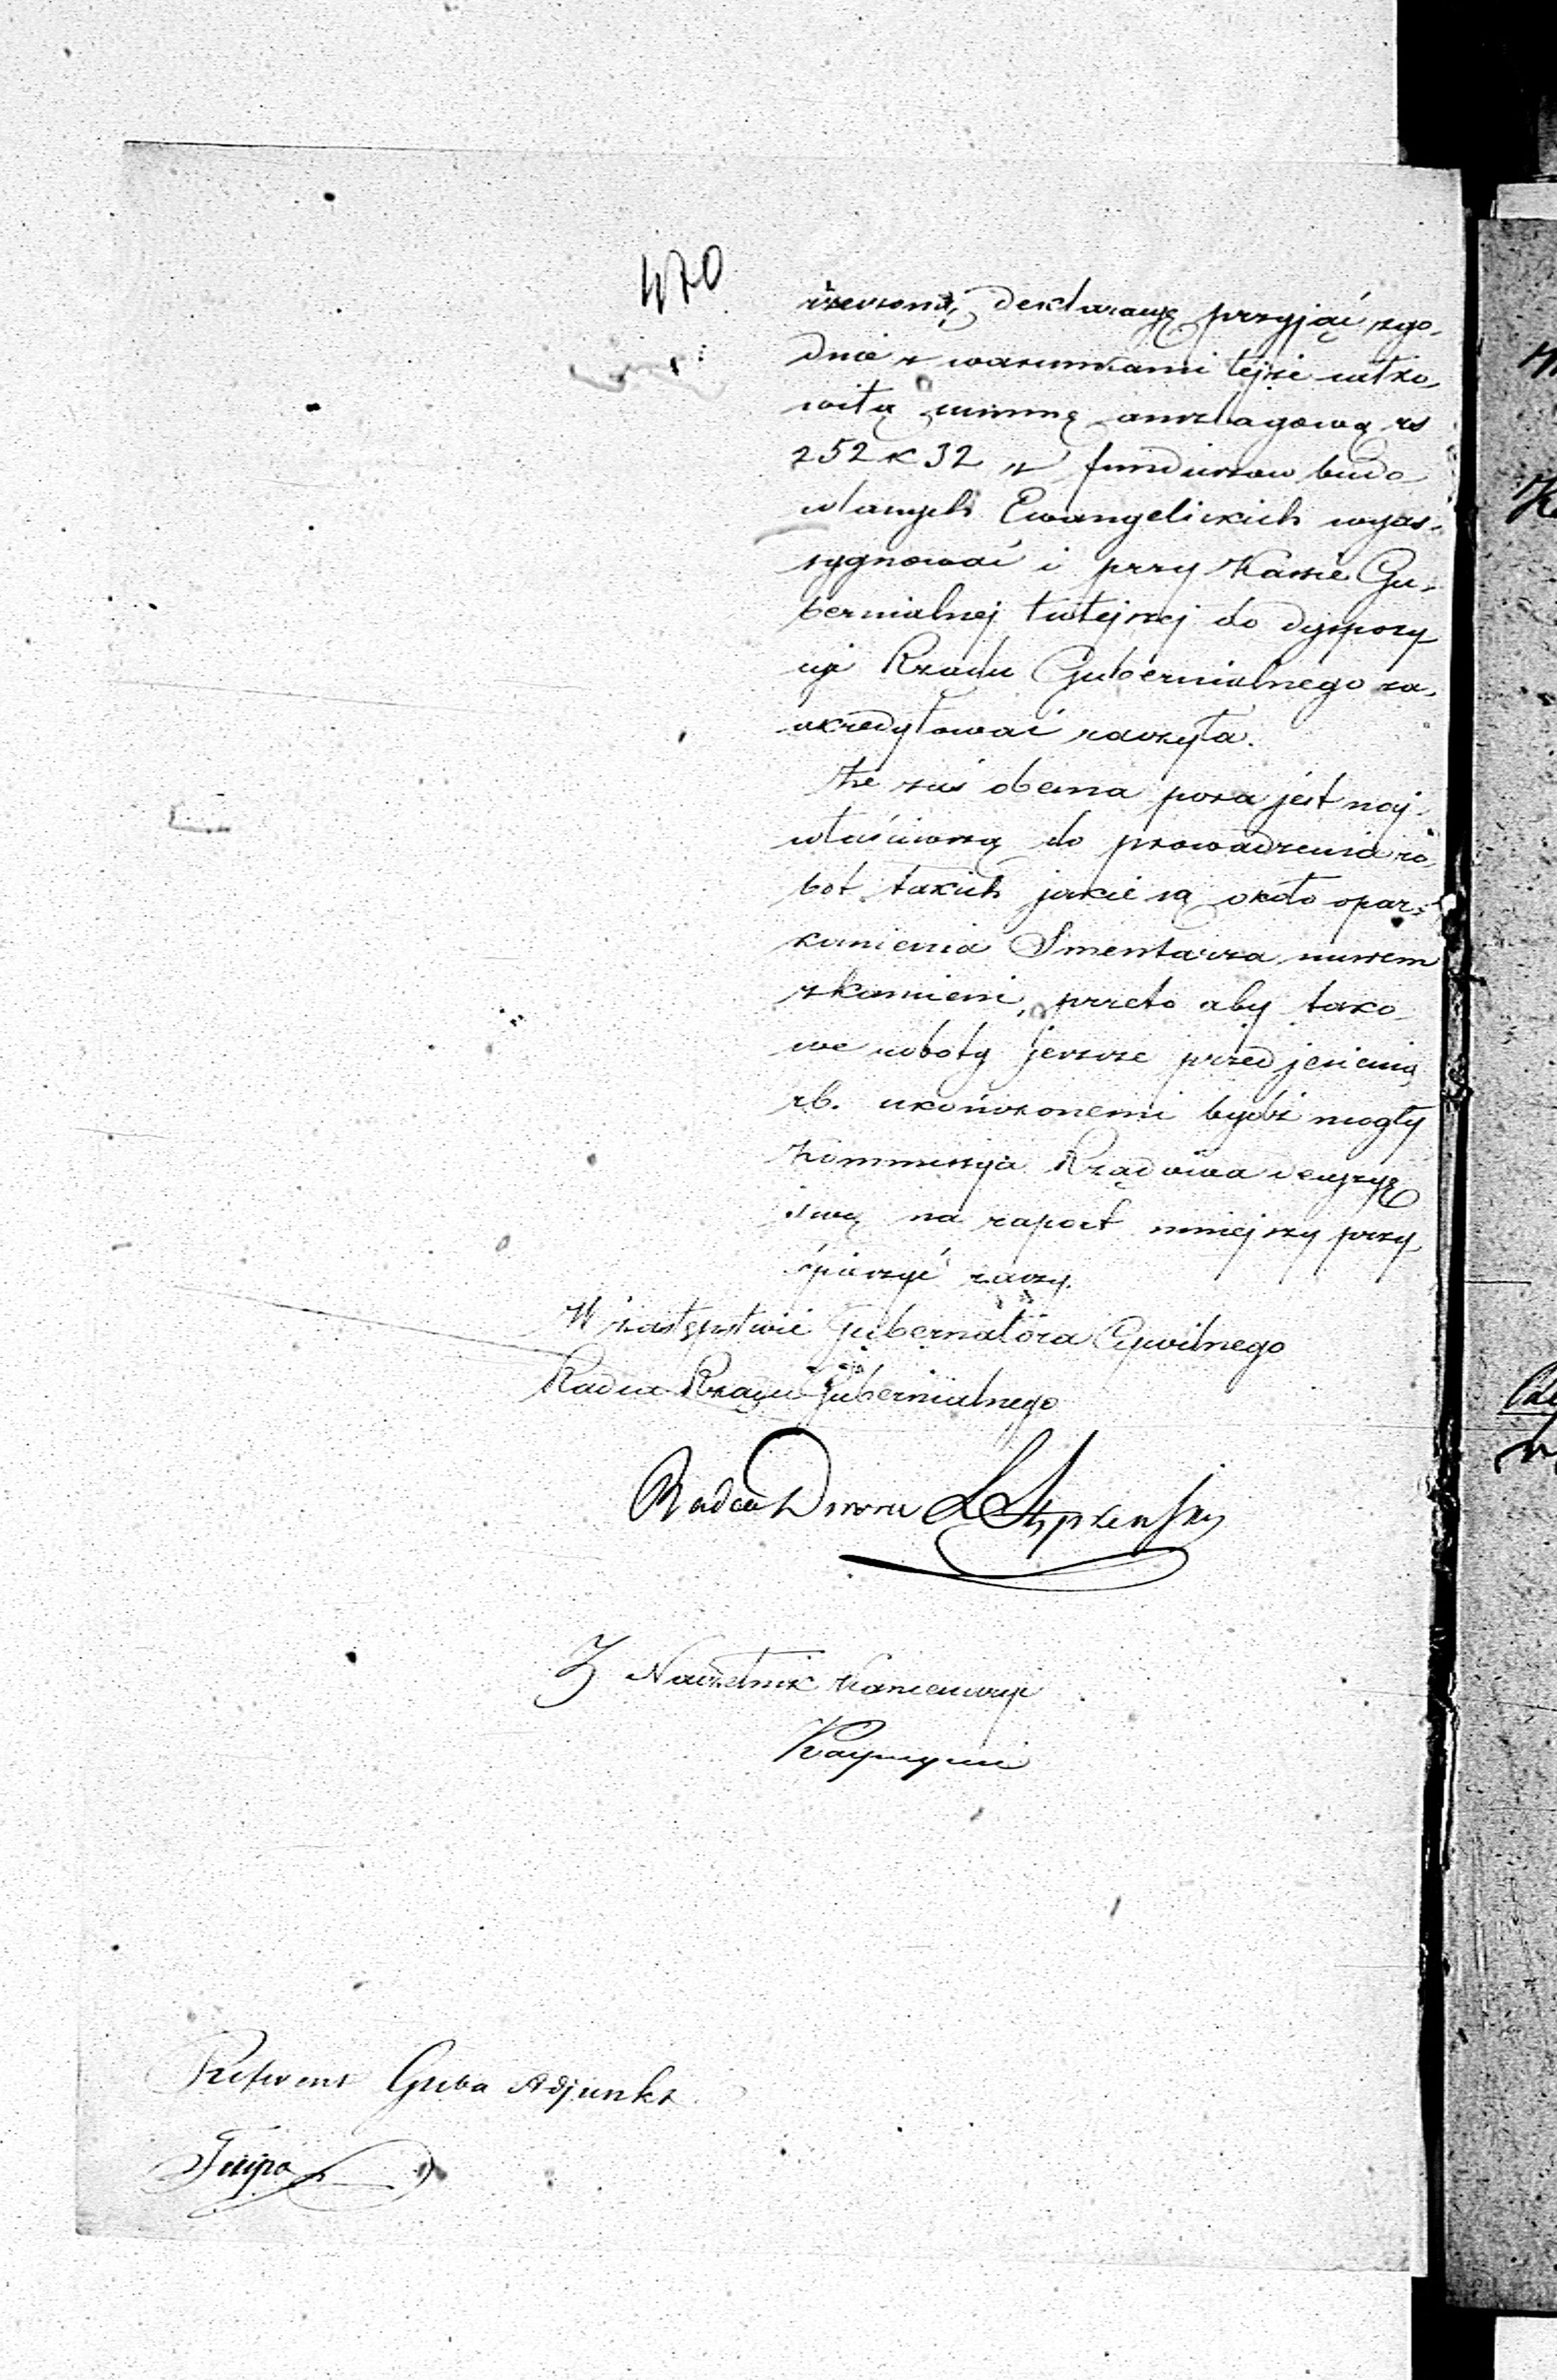 470
rzeczoną deklaracyę przyjąć, zgo-
dnie z warunkami tejże całko-
witą summę anszlagową rs
252 k 32 z funduszów budo
wlanych Ewangelickich wyas-
sygnować i przy Kassie Gu-
bernialnej tutejszej do dyspozy
cyi Rządu Gubernialnego za-
akredytować raczyła.
Że zaś obecna pora jest naj-
właściwszą do prowadzenia ro-
bot takich jakie są około opar-
kanienia Smentarza murem
z kamieni, przeto aby tako-
we roboty jeszcze przed jesienią
rb. ukończonemi bydź mogły
Kommissya Rządowa decyzyę
swą na raport niniejszy przy
śpieszyć raczy.
W zastępstwie Gubernatora Cywilnego
Radca Rządu Gubernialnego
Radca Dworu
Z Naczelnik Kancellaryi
Referent Adjunkt